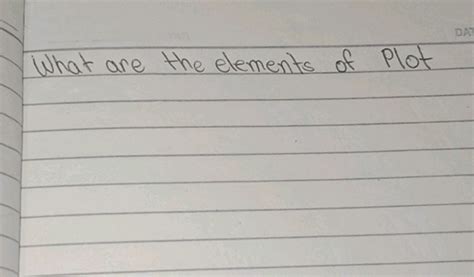 DAT
What are the elements of Plot